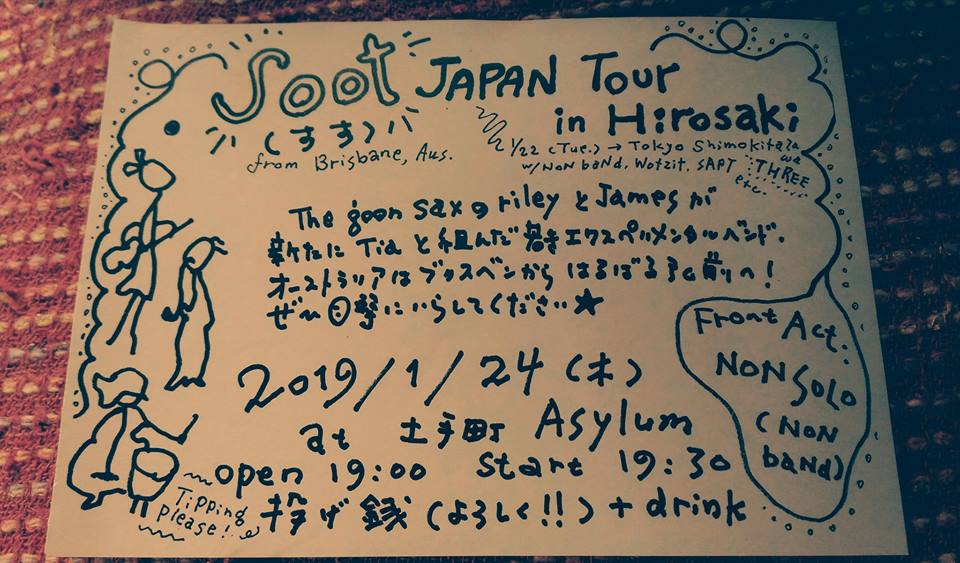 Soot JAPAN Tour
in Hirosaki
(すす)
from Brisbane, Aus.
1/22 (Tue.) → Tokyo Shimokitazawa
w/NON baNd, Wotzit, SAPT THREE
etc...
The goon saxのrileyとJamesが
新たにTiaと組んだ若きエクスペリメンタルバンド.
オーストラリアはブリスベンからはるばる弘前へ!
ぜひ目撃にいらしてください★
Front Act.
NON SOLO
(NON
baNd)
2019/1/24 (木)
at 土手町 Asylum
open 19:00 start 19:30
Tipping
please!
投げ銭(よろしく!!)+drink